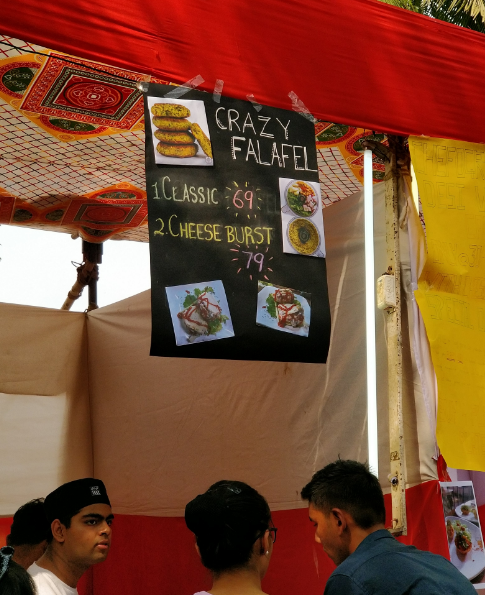 CRAZY
FALAFEL
1. CLASSIC 69
2. CHEESE BURST
79